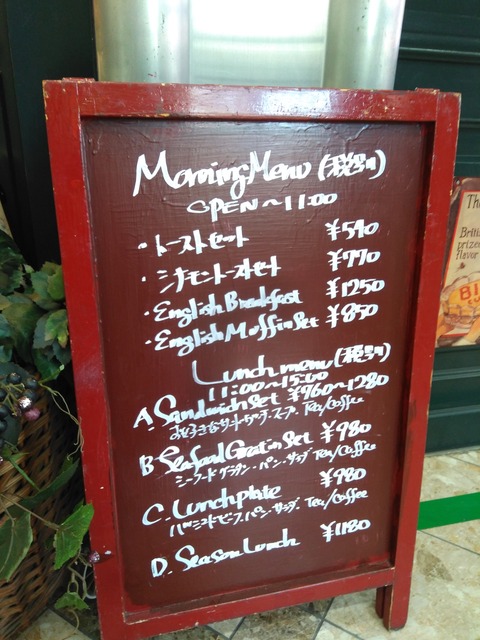 Morning Menu (税別)
OPEN～11:00
・トーストセット ¥590
・シナモントーストセット ¥770
・English Breakfast ¥1250
・English Muffin Set ¥850
Lunch menu (税別)
11:00～15:00
A. Sandwich Set ¥960～1280
お好きなサンドイッチ・スープ Tea/Coffee
B. Seafood Gratin Set ¥980
シーフードグラタン・パン・サラダ Tea/Coffee
C. Lunch plate ¥980
パン・サラダ Tea/Coffee
D. Season Lunch ¥1180
Th
Briti
prize
flavor
BI